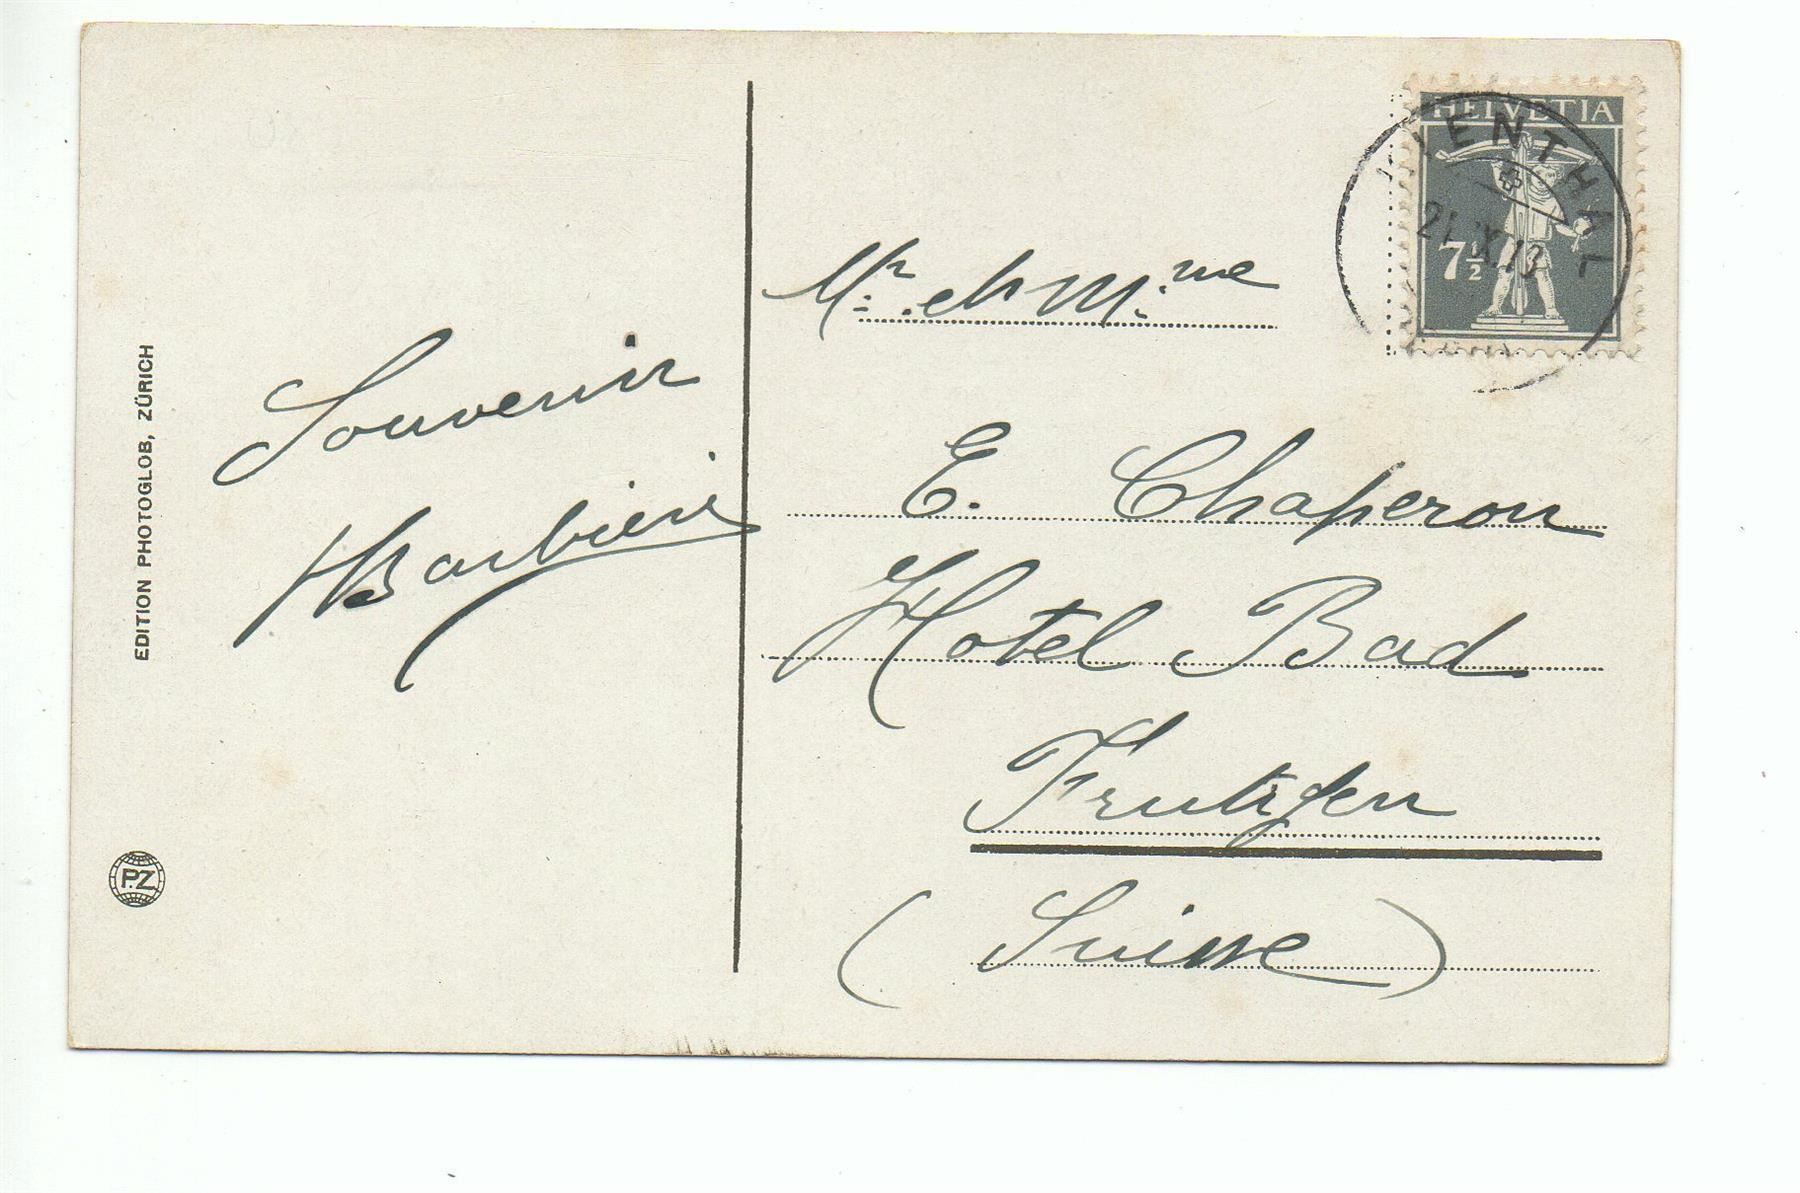 EDITION PHOTOGLOB, ZÜRICH
P.Z
Souvenir
HBarbieri
HELVETIA
7 1/2
IENTHAL
Mr. et Mme
E. Chaperon
Hotel Bad
Frutigen
(Suisse)